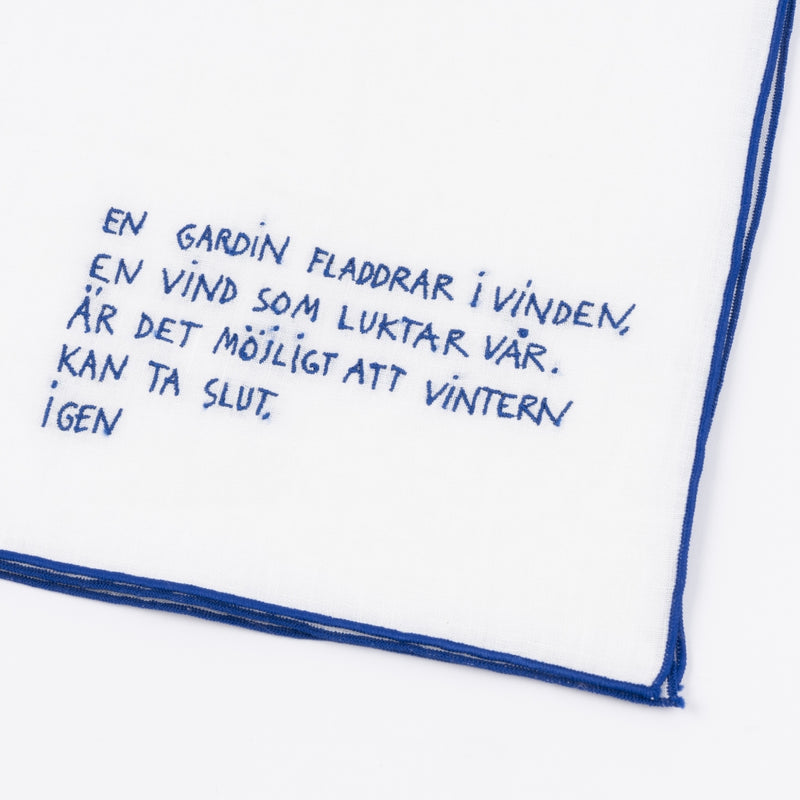 EN GARDIN FLADDRAR I VINDEN,
EN VIND SOM LUKTAR VÅR.
ÄR DET MÖJLIGT ATT VINTERN
KAN TA SLUT,
IGEN